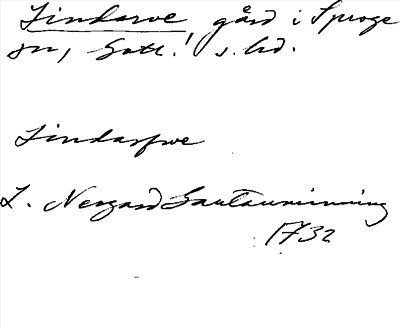 Lindarve, gård i Sproge
sn, Gotl. s. hd.
Lindarfwe
L. Nergård Gautauminning
1732